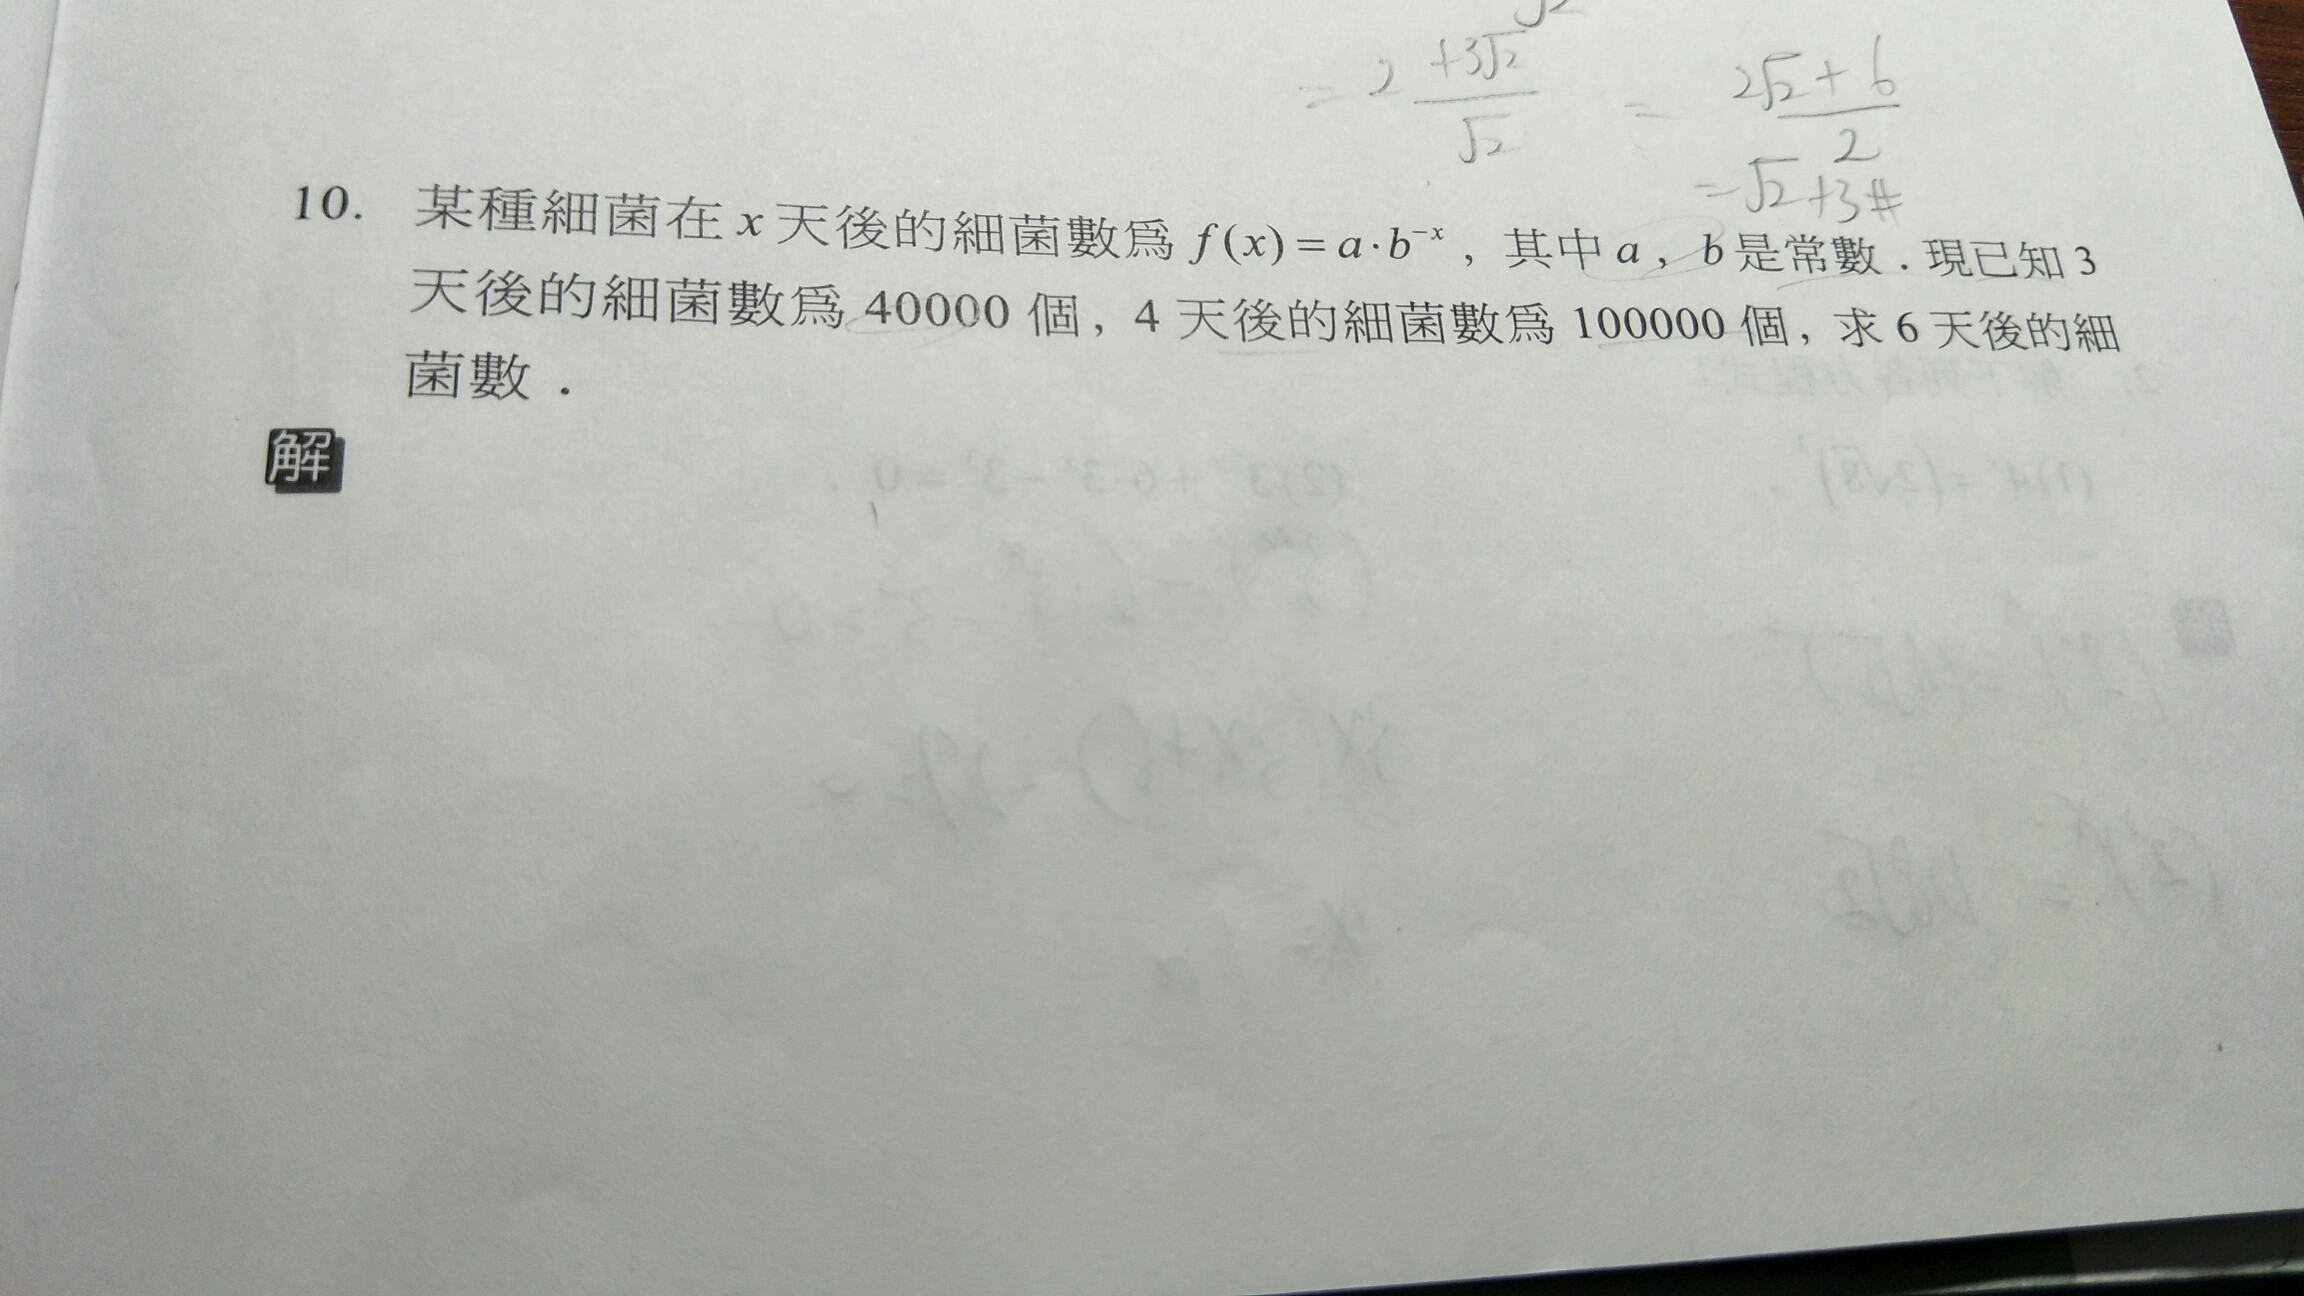 = 2 +3√2 / √2 = 2√2 + 6 / 2
= √2 + 3 #
10. 某種細菌在 x 天後的細菌數為 f(x) = a·b⁻ˣ , 其中 a , b 是常數 . 現已知 3
天後的細菌數為 40000 個 , 4 天後的細菌數為 100000 個 , 求 6 天後的細
菌數 .
解